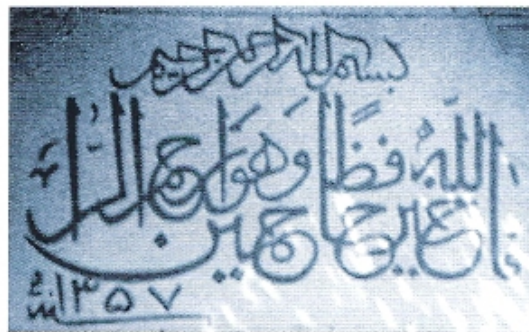 بسم الله الرحمن الرحيم
الله خير حافظا وهو ارحم الراحمين
سنة ١٣٥٧